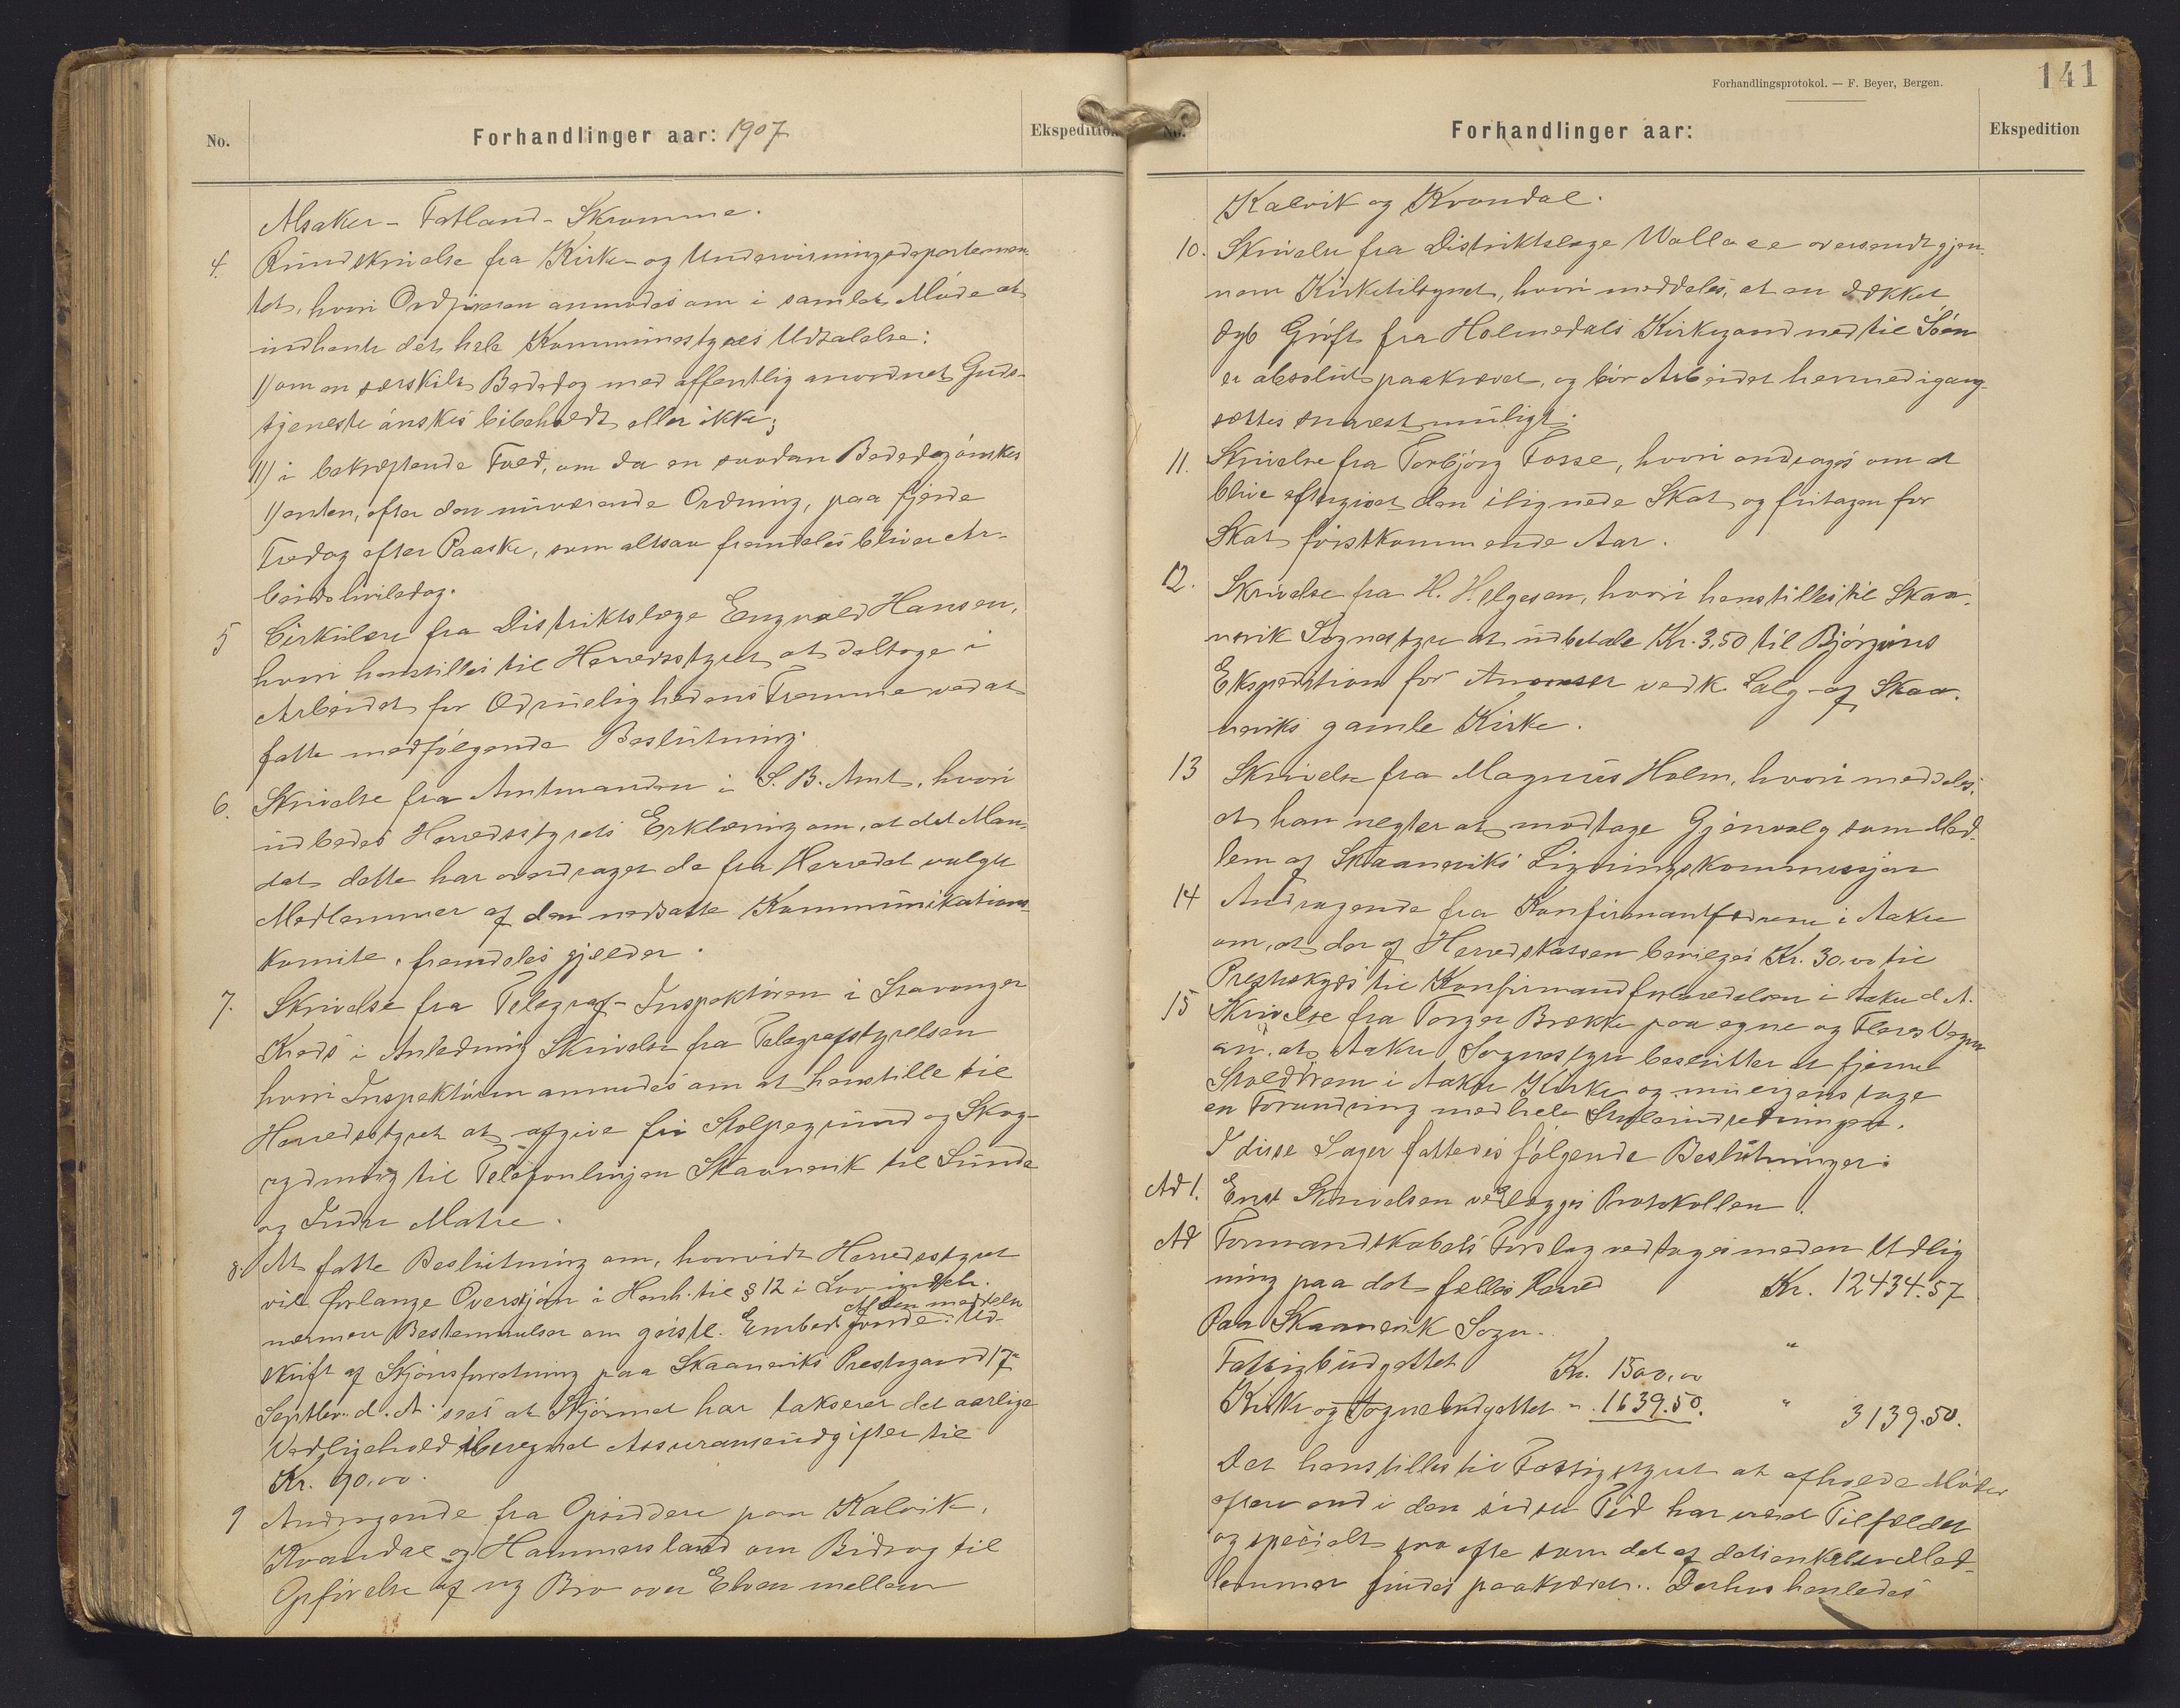 No.
Forhandlinger aar: 1907
Ekspedition
Alsaker - Fatland - Skromme.
4. Rundskrivelse fra Kirke- og Undervisningsdepartemen-
tet, hvori Ordføreren anmodes om i samlet Møde at
indhente det hele Kommunestyres Udtalelse:
I) om en særskilt Bededag med offentlig anordnet Guds-
tjeneste ønskes bibeholdt eller ikke;
II) i bekræftende Fald, om da en saadan Bededag ønskes
1) enten, efter den nuværende Ordning, paa fjerde
Fredag efter Paaske, som altsaa fremdeles bliver Ar-
beidshviledag.
5 Cirkulære fra Distriktslæge Engvald Hansen,
hvori henstilles til Herredsstyret at deltage i
Arbeidet for Ædrueligheden's Fremme ved at
fatte medfølgende Beslutning.
6. Skrivelse fra Amtmanden i S. B. Amt, hvori
udbedes Herredsstyrets Erklæring om, at det Man-
dat dette har overdraget de fra Herredet valgte
Medlemmer af den nedsatte Kommunikations-
komite, fremdeles gjelder.
7. Skrivelse fra Telegraf-Inspektøren i Stavanger
Kreds i Anledning Skrivelse fra Telegrafstyrelsen
hvori Inspektøren anmodes om at henstille til
Herredsstyret at afgive fri Stolpegrund og Skog-
rydning til Telefonlinjen Skaanevik til Sunde
og Indre Matre.
8. At fatte Beslutning om, hvorvidt Herredsstyret
vil forlange Overskjøn i Henh. til § 12 i Lov indeh.
nærmere Bestemmelser om geistl. Embedsfonde. Af den meddelte Ud-
skrift af Skjønsforretning paa Skaaneviks Prestegaard 17de
Septbr. d. A. sees at Skjønnet har takseret det aarlige
Vedligehold iberegnet Assuranseudgifter til
Kr. 90,00.
9 Andragende fra Opsiddere paa Kalvik,
Kvandal og Hammersland om Bidrag til
Opførelse af ny Bro over Elven mellem
Forhandlingsprotokol. — F. Beyer, Bergen.
141
No.
Forhandlinger aar:
Ekspedition
Kalvik og Kvandal.
10. Skrivelse fra Distriktslæge Wallace oversendt gjen-
nem Kirketilsynet, hvori meddeles, at en dækket
dyb Grøft fra Holmedals Kirkegaard ned til Søen
er absolut paakrævet, og bør Arbeidet hermed igang-
sættes snarest muligt.
11. Skrivelse fra Torbjørg Fosse, hvori andrages om at
blive eftergivet den ilignede Skat og fritagen for
Skat førstkommende Aar.
12. Skrivelse fra H. Helgesen, hvori henstilles til Skaa-
nevik Sognestyre at udbetale Kr. 3,50 til Bjørgvins
Ekspedition for Anonser vedk. Salg af Skaa-
neviks gamle Kirke.
13 Skrivelse fra Magnus Holm, hvori meddeles,
at han negter at modtage Gjenvalg som Med-
lem af Skaaneviks Ligningskommissjon
14 Andragende fra Konfirmantfædrene i Aakre
om, at der af Herredskassen bevilges Kr. 30,00 til
Presteskyds til Konfirmandforberedelsen i Aakre d. A.
15 Skrivelse fra Torger Brække paa egne og Fleres Vegne
om, at Aakre Sognestyre beslutter at fjerne
i Aakre Kirke og muligens tage
en Forandring med hele Stoleindretningen.
I disse Sager fattedes følgende Beslutninger:
Ad 1. Enst Skrivelsen vedlægges Protokollen.
Ad Formandskabets Forslag vedtages med en Udlig
ning paa det fælles Herred Kr. 12434.57
Paa Skaanevik Sogn. "
Fattigbudgettet Kr. 1500,00
Kirke og Sognebudgettet " 1639.50. " 3139.50.
Det henstilles til Fattigstyret at afholde Møder
oftere end i den sidste Tid har været Tilfældet
og specielt saa ofte som det af dets enkelte Med-
lemmer findes paakrævet. Derhos henledes